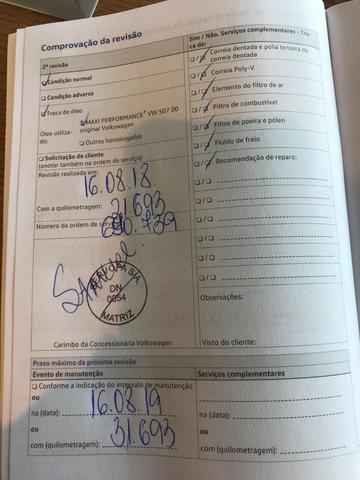 Comprovação da revisão
2ª revisão
Condição normal
Condição adversa
Troca de óleo
Óleo utilizado:
MAXI PERFORMANCE® VW 507 00 original Volkswagen
Outros homologados
Solicitação do cliente
(anotar também na ordem de serviço)
Revisão realizada em:
16.08.18
Com a quilometragem: 21.693
Número da ordem de serviço
DN
0054
MATRIZ
Carimbo da Concessionária Volkswagen
Sim / Não. Serviços complementares - Troca de:
Correia dentada e polia tensora da correia dentada
Correia Poly-V
Elemento do filtro de ar
Filtro de combustível
Filtro de poeira e pólen
Fluido de freio
Recomendação de reparo:
Observações:
Visto do cliente:
Prazo máximo da próxima revisão
Evento de manutenção
Conforme a indicação do intervalo de manutenção
ou
na (data): 16.08.19
ou
com (quilometragem): 31.693
Serviços complementares
ou
na (data):
ou
com (quilometragem):